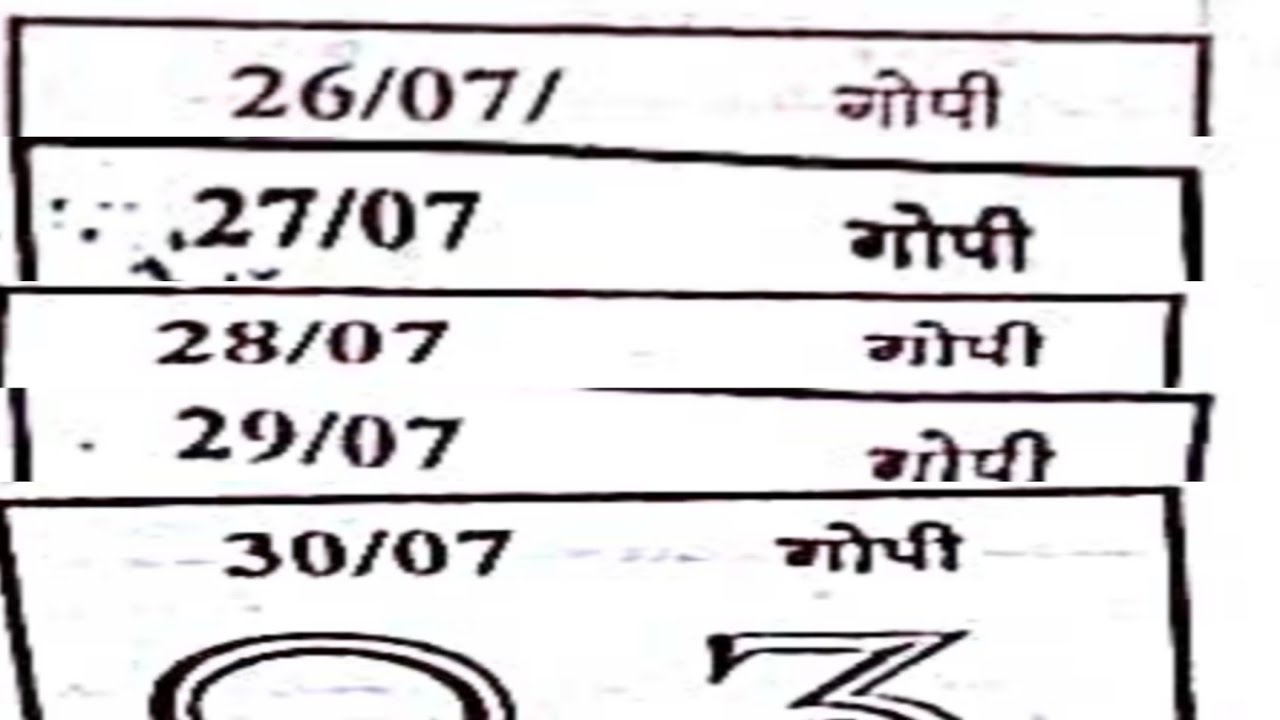 26/07/ गोपी
27/07 गोपी
28/07 गोपी
29/07 गोपी
30/07 गोपी